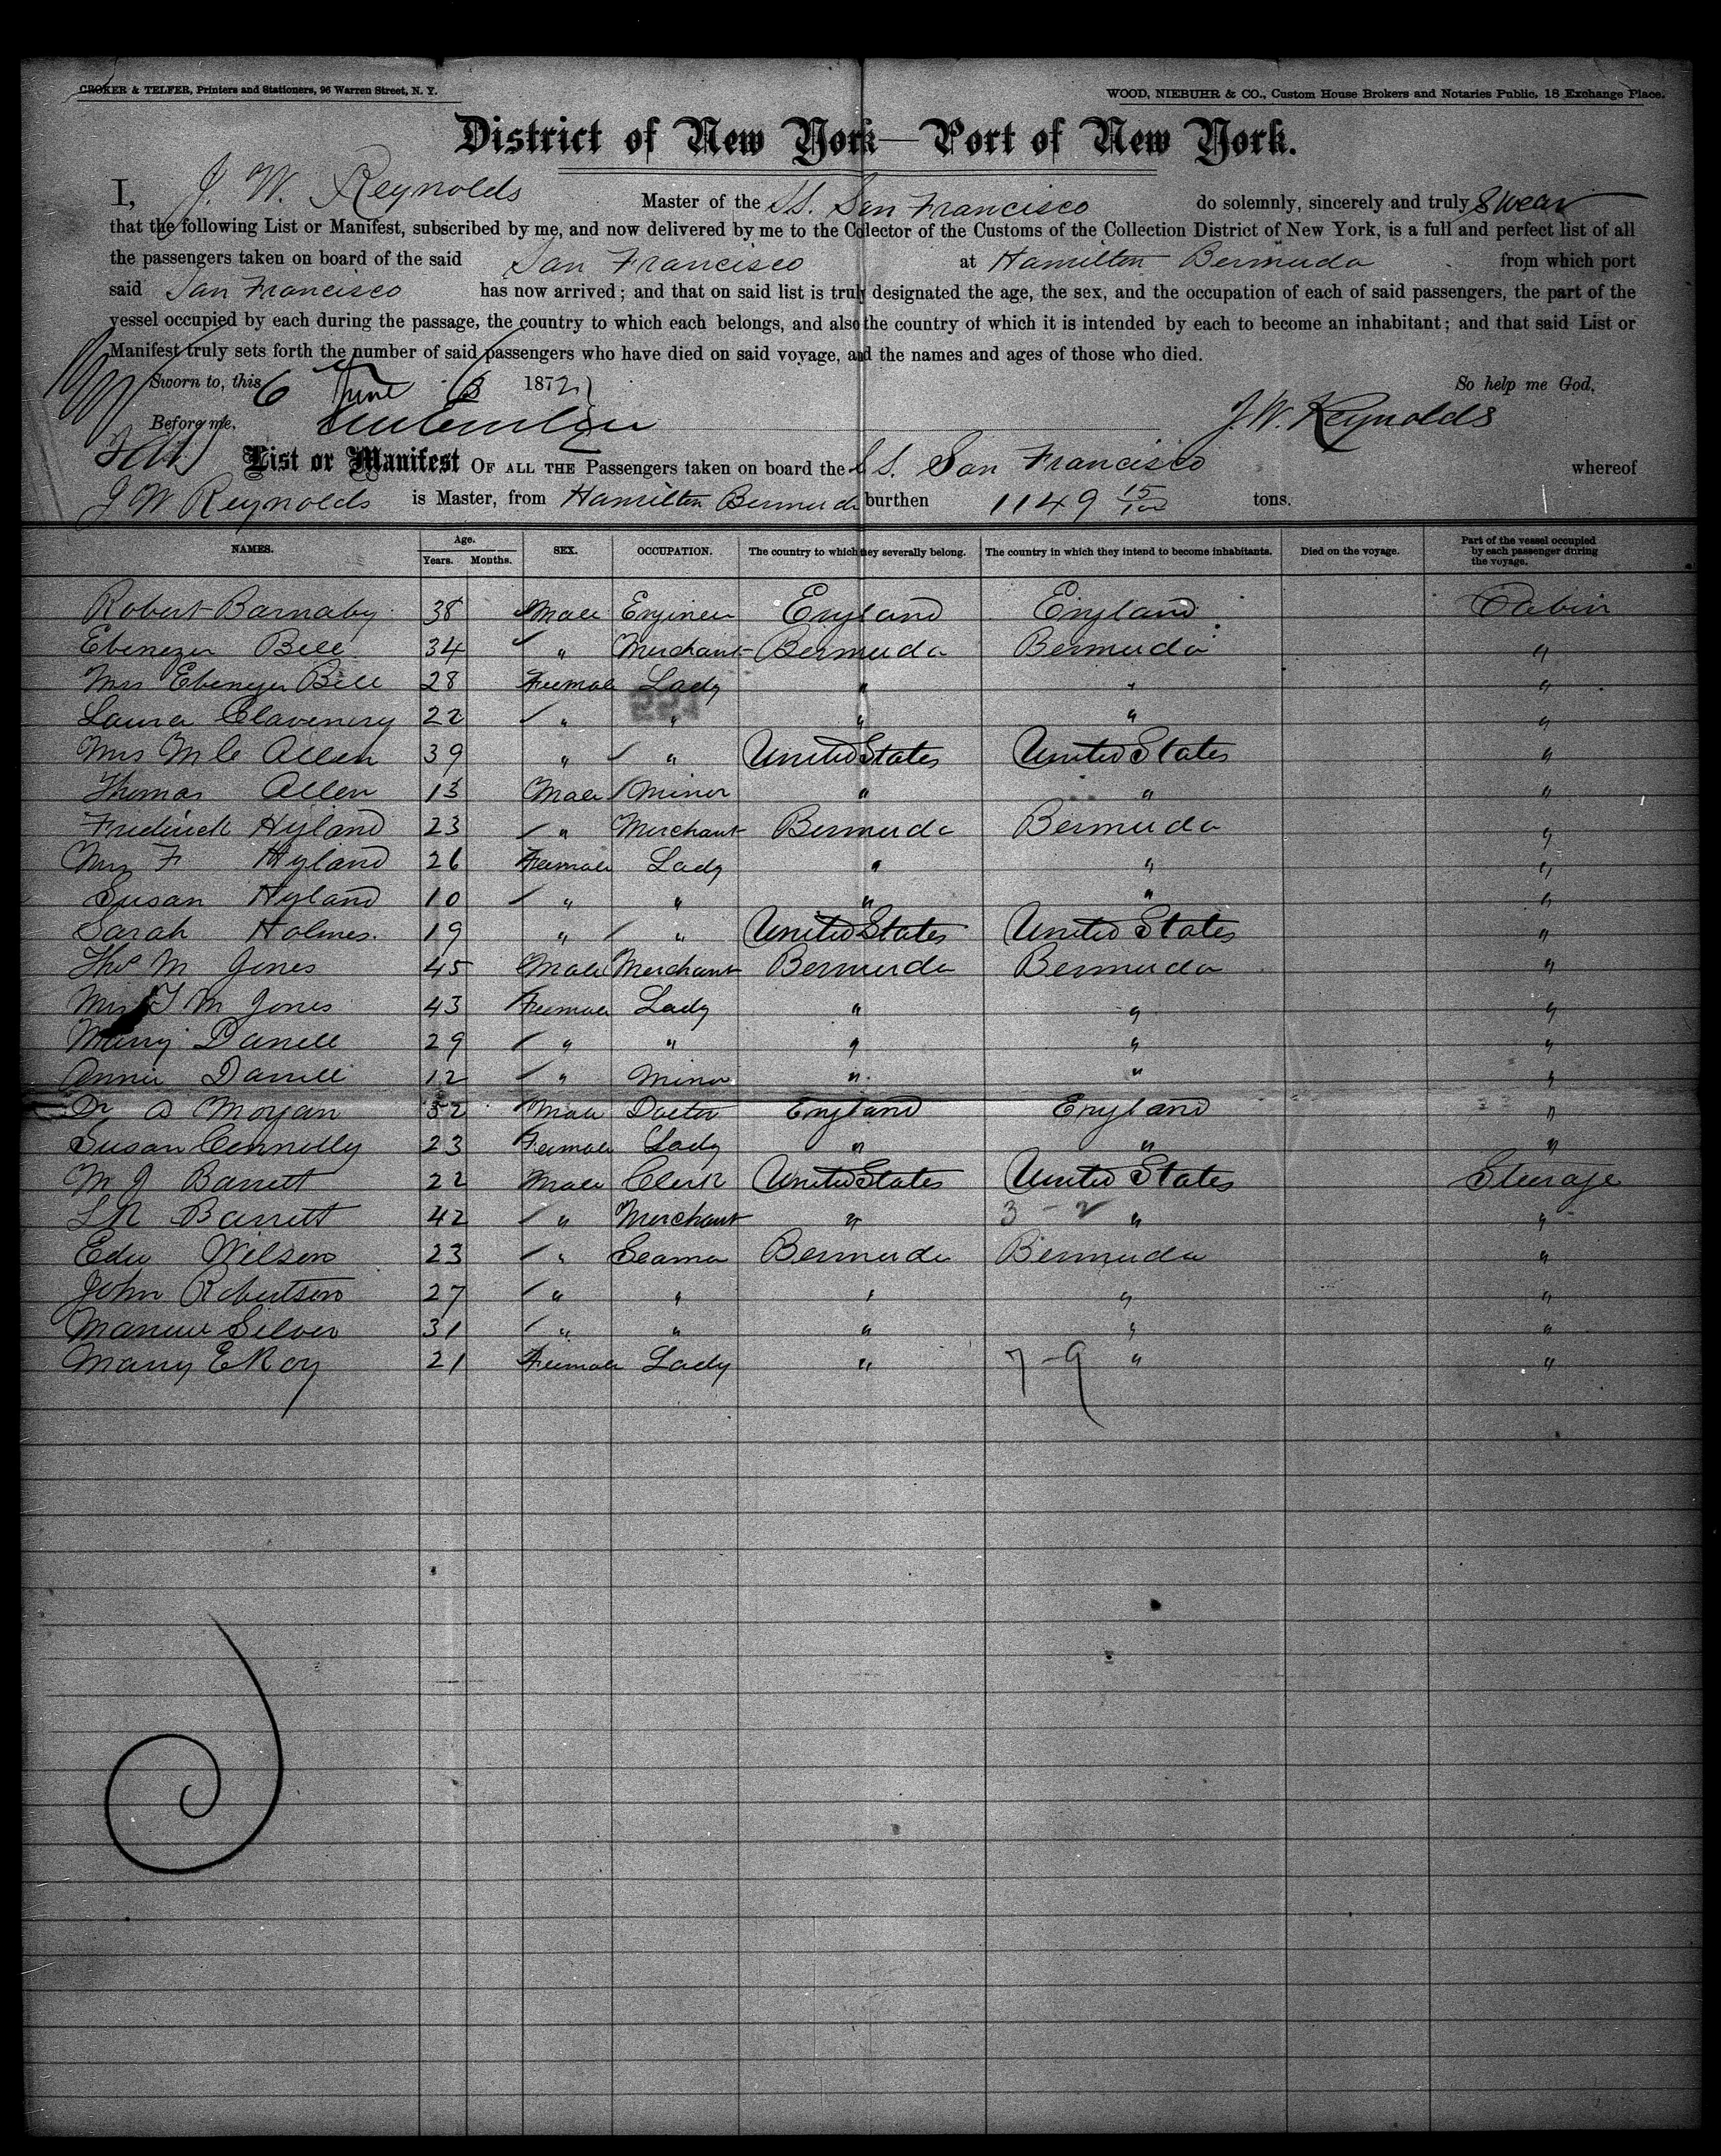 CROKER & TELFER, Printers and Stationers, 96 Warren Street, N. Y.
WOOD, NIEBUHR & CO., Custom House Brokers and Notaries Public, 18 Exchange Place.
District of New York—Port of New York.
I, J. W. Reynolds Master of the SS. San Francisco do solemnly, sincerely and truly Swear
that the following List or Manifest, subscribed by me, and now delivered by me to the Collector of the Customs of the Collection District of New York, is a full and perfect list of all
the passengers taken on board of the said San Francisco at Hamilton Bermuda from which port
said San Francisco has now arrived; and that on said list is truly designated the age, the sex, and the occupation of each of said passengers, the part of the
vessel occupied by each during the passage, the country to which each belongs, and also the country of which it is intended by each to become an inhabitant; and that said List or
Manifest truly sets forth the number of said passengers who have died on said voyage, and the names and ages of those who died.
Sworn to, this 6th June 6 1872 So help me God,
Before me, J. W. Reynolds
List or Manifest OF ALL THE Passengers taken on board the S S. San Francisco whereof
J W Reynolds is Master, from Hamilton Bermuda burthen 1149 15/100 tons.
NAMES. Age. Years. Months. SEX. OCCUPATION. The country to which they severally belong. The country in which they intend to become inhabitants. Died on the voyage. Part of the vessel occupied by each passenger during the voyage.
Robert Barnaby 38 Male Engineer England England Cabin
Ebenezer Bell 34 " Merchant Bermuda Bermuda "
Mrs Ebenezer Bell 28 Feemale Lady " " "
Laura 22 " " " " "
Mrs M C Allen 39 " " United States United States "
Thomas Allen 13 Male Minor " " "
Frederick Hyland 23 " Merchant Bermuda Bermuda "
Mrs F Hyland 26 Feemale Lady " " "
Susan Hyland 10 " " " " "
Sarah Holmes 19 " " United States United States "
Thos M Jones 45 Male Merchant Bermuda Bermuda "
Mrs T M Jones 43 Feemale Lady " " "
Marry Darrell 29 " " " " "
Annie Darrell 12 " Minor " " "
Dr Morgan 52 Male Doctor England England "
Susan Connolly 23 Feemale Lady " " "
M J Barrett 22 Male Clerk United States United States Steerage
Barrett 42 " Merchant " 3 - 2 " "
Edw Wilson 23 " Seaman Bermuda Bermuda "
John Robertson 27 " " " " "
Manuel Silver 31 " " " " "
Marry E Roy 21 Feemale Lady " 7 - 9 " "